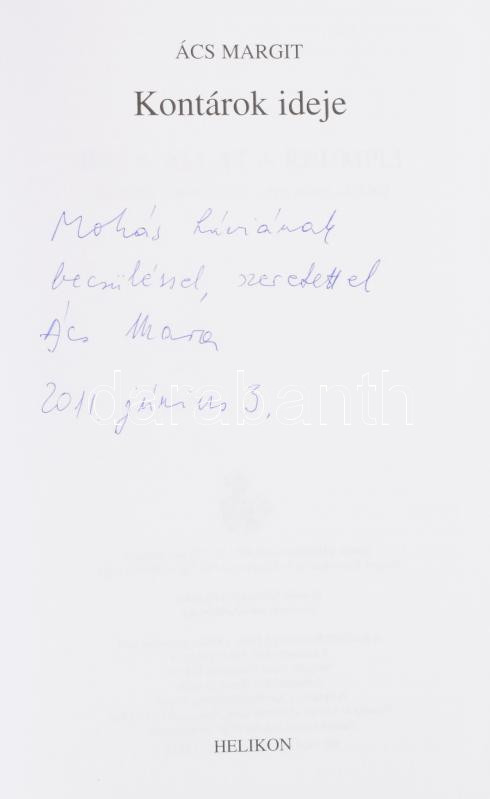 ÁCS MARGIT
Kontárok ideje
Mohás Líviának
becsüléssel, szeretettel
Ács Mara
2011 június 3.
darabanth
HELIKON